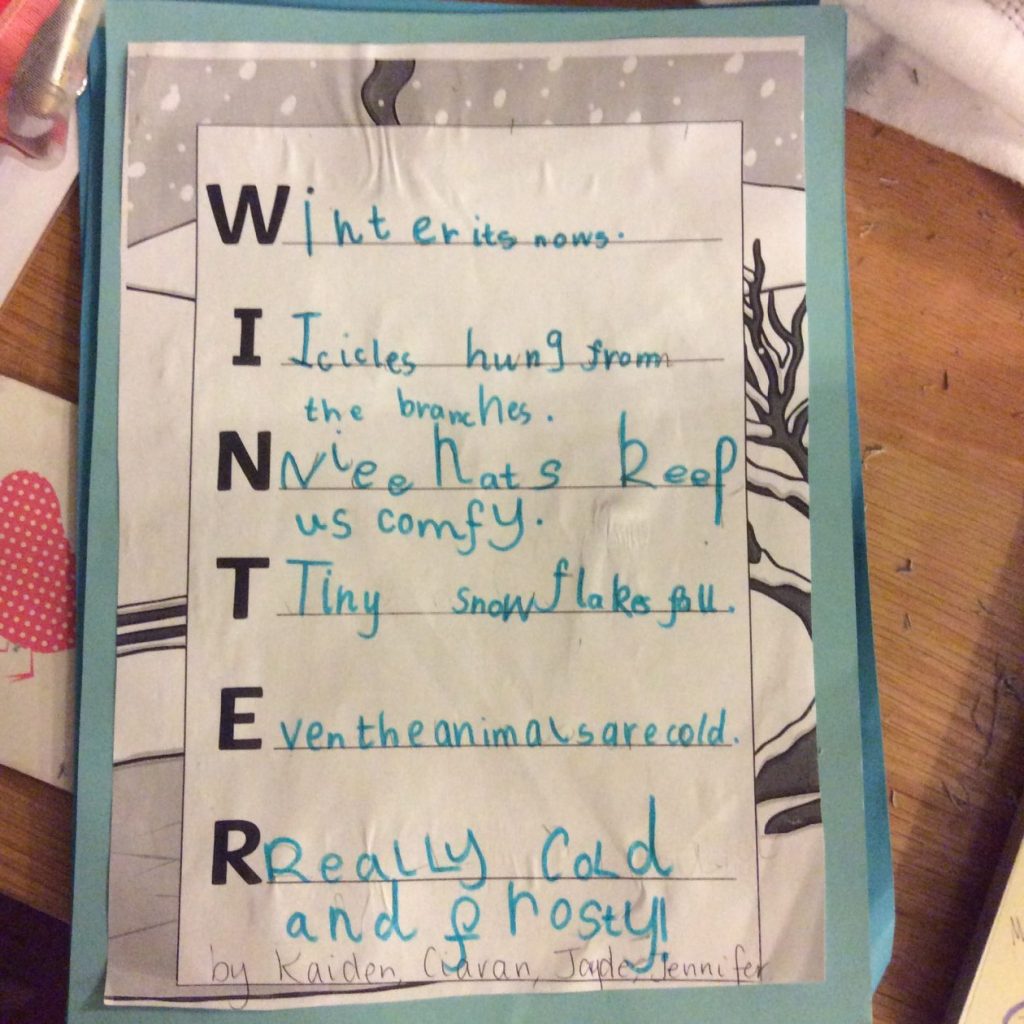 Winter its nows.
I Icicles hung from
the branches.
N Nice hats keep
us comfy.
T Tiny snowflakes fall.
Even the animals are cold.
R Really cold
and frosty!
by Kaiden, Ciaran, Jayde, Jennifer